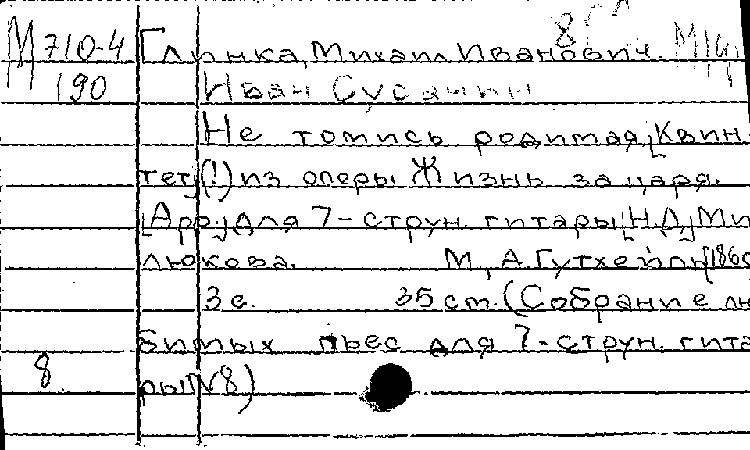 М 710-4 Глинка, Михаил Иванович.
190 Иван Сусанин
Не томись родимая, [Квин
тет] (!) из оперы Жизнь за царя.
[Арр.] для 7-струн. гитары [Н.Д.] Ми
люкова. М., А. Гутхейль,
3 с. 35 см. (Собрание лю
бимых пьес для 7-струн. гита
8. ры № 8)